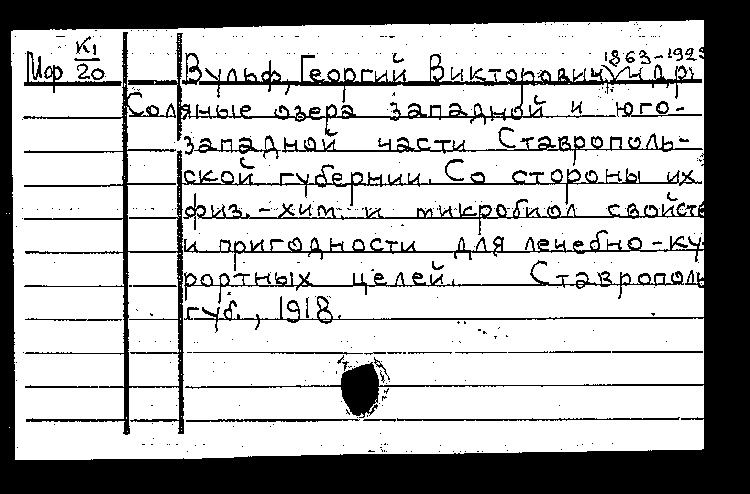 Мор К1/20
1863-1925
Вульф, Георгий Викторович и др.
Соляные озера западной и юго-
западной части Ставрополь-
ской губернии. Со стороны их
физ.-хим. и микробиол свойств
и пригодности для лечебно-ку-
рортных целей. Ставрополь
губ., 1918.